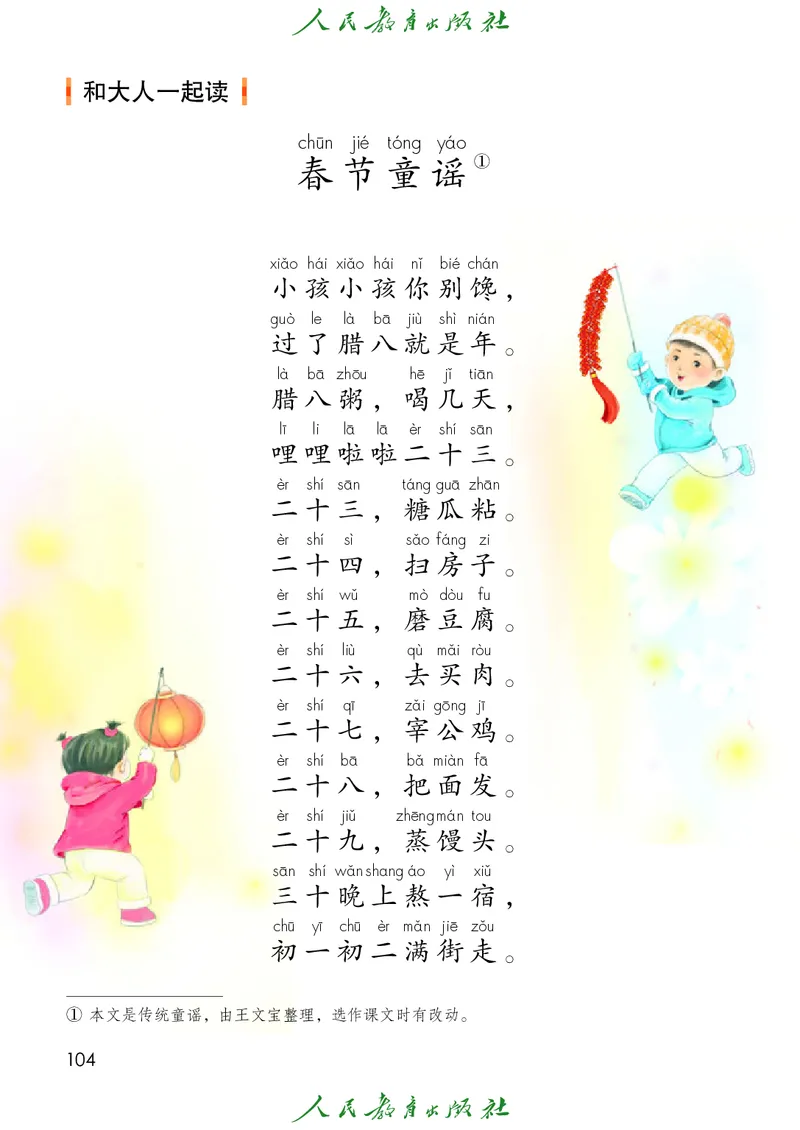 人民教育出版社
和大人一起读
chūn jié tóng yáo
春节童谣①
xiǎo hái xiǎo hái nǐ bié chán
小孩小孩你别馋，
guò le là bā jiù shì nián
过了腊八就是年。
là bā zhōu hē jǐ tiān
腊八粥，喝几天，
lī li lā lā èr shí sān
哩哩啦啦二十三。
èr shí sān táng guā zhān
二十三，糖瓜粘。
èr shí sì sǎo fáng zi
二十四，扫房子。
èr shí wǔ mò dòu fu
二十五，磨豆腐。
èr shí liù qù mǎi ròu
二十六，去买肉。
èr shí qī zǎi gōng jī
二十七，宰公鸡。
èr shí bā bǎ miàn fā
二十八，把面发。
èr shí jiǔ zhēng mán tou
二十九，蒸馒头。
sān shí wǎn shang áo yì xiǔ
三十晚上熬一宿，
chū yī chū èr mǎn jiē zǒu
初一初二满街走。
① 本文是传统童谣，由王文宝整理，选作课文时有改动。
104
人民教育出版社